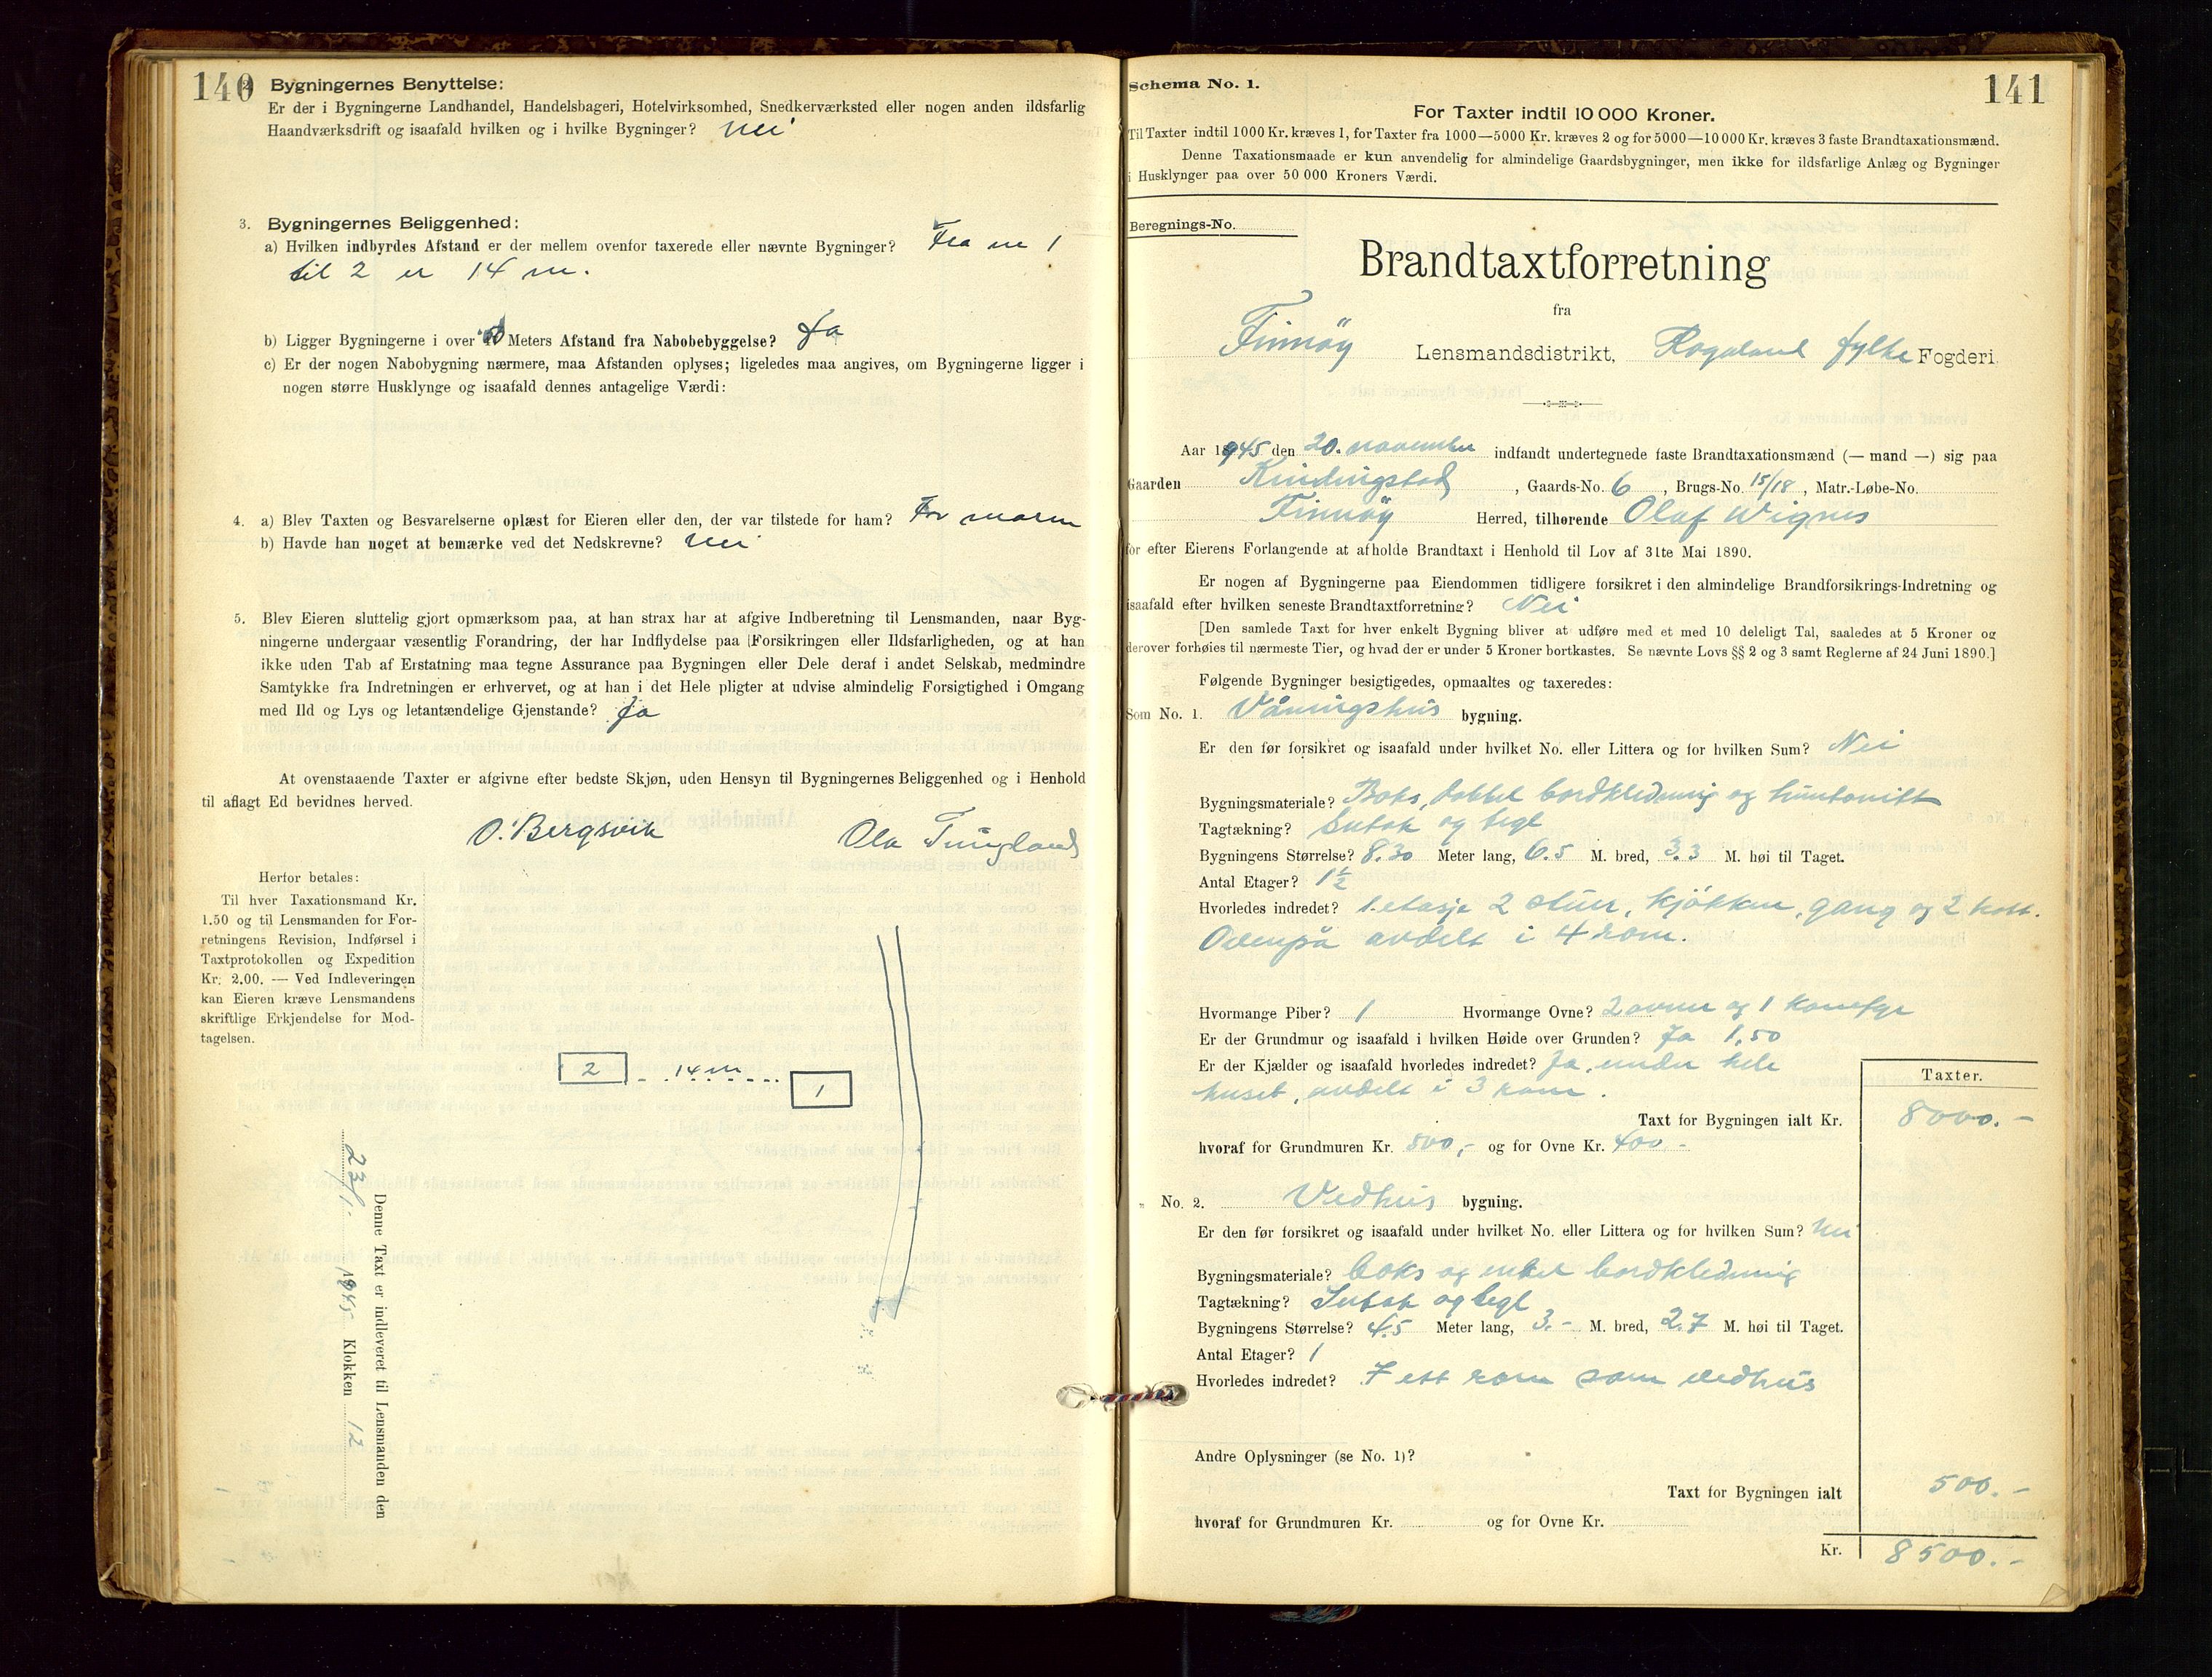 140
2. Bygningernes Benyttelse:
Er der i Bygningerne Landhandel, Handelsbageri, Hotelvirksomhed, Snedkerværksted eller nogen anden ildsfarlig
Haandværksdrift og isaafald hvilken og i hvilke Bygninger? Nei
3. Bygningernes Beliggenhed:
a) Hvilken indbyrdes Afstand er der mellem ovenfor taxerede eller nævnte Bygninger? Fra nr 1
til 2 er 14 m.
b) Ligger Bygningerne i over 50 Meters Afstand fra Nabobebyggelse? Ja
c) Er der nogen Nabobygning nærmere, maa Afstanden oplyses; ligeledes maa angives, om Bygningerne ligger i
nogen større Husklynge og isaafald dennes antagelige Værdi:
4. a) Blev Taxten og Besvarelserne oplæst for Eieren eller den, der var tilstede for ham? For moren
b) Havde han noget at bemærke ved det Nedskrevne? Nei
5. Blev Eieren sluttelig gjort opmærksom paa, at han strax har at afgive Indberetning til Lensmanden, naar Byg-
ningerne undergaar væsentlig Forandring, der har Indflydelse paa Forsikringen eller Ildsfarligheden, og at han
ikke uden Tab af Erstatning maa tegne Assurance paa Bygningen eller Dele deraf i andet Selskab, medmindre
Samtykke fra Indretningen er erhvervet, og at han i det Hele pligter at udvise almindelig Forsigtighed i Omgang
med Ild og Lys og letantændelige Gjenstande? Ja
At ovenstaaende Taxter er afgivne efter bedste Skjøn, uden Hensyn til Bygningernes Beliggenhed og i Henhold
til aflagt Ed bevidnes herved.
O. Bergsvik Ola Tungland
Herfor betales:
Til hver Taxationsmand Kr.
1.50 og til Lensmanden for For-
retningens Revision, Indførsel i
Taxtprotokollen og Expedition
Kr. 2.00. — Ved Indleveringen
kan Eieren kræve Lensmandens
skriftlige Erkjendelse for Mod-
tagelsen.
2 14 m 1
Denne Taxt er indleveret til Lensmanden den
23/1. 1945 Klokken 12
Schema No. 1.
141
For Taxter indtil 10 000 Kroner.
Til Taxter indtil 1000 Kr. kræves 1, for Taxter fra 1000—5000 Kr. kræves 2 og for 5000—10 000 Kr. kræves 3 faste Brandtaxationsmænd.
Denne Taxationsmaade er kun anvendelig for almindelige Gaardsbygninger, men ikke for ildsfarlige Anlæg og Bygninger
i Husklynger paa over 50 000 Kroners Værdi.
Beregnings-No.
Brandtaxtforretning
fra
Finnöy Lensmandsdistrikt, Rogaland fylke Fogderi
Aar 1945 den 20. november indfandt undertegnede faste Brandtaxationsmænd (— mand —) sig paa
Gaarden Kindingstad, Gaards-No. 6, Brugs-No. 15/18, Matr.-Løbe-No.
Finnöy Herred, tilhørende Olaf Wignes
for efter Eierens Forlangende at afholde Brandtaxt i Henhold til Lov af 31te Mai 1890.
Er nogen af Bygningerne paa Eiendommen tidligere forsikret i den almindelige Brandforsikrings-Indretning og
isaafald efter hvilken seneste Brandtaxtforretning? Nei
[Den samlede Taxt for hver enkelt Bygning bliver at udføre med et med 10 deleligt Tal, saaledes at 5 Kroner og
derover forhøies til nærmeste Tier, og hvad der er under 5 Kroner bortkastes. Se nævnte Lovs §§ 2 og 3 samt Reglerne af 24 Juni 1890.]
Følgende Bygninger besigtigedes, opmaaltes og taxeredes:
Som No. 1. Våningshus bygning.
Er den før forsikret og isaafald under hvilket No. eller Littera og for hvilken Sum? Nei
Bygningsmateriale? Boks, dobbel bordkledning og huntonitt
Tagtækning? Sutak og tegl
Bygningens Størrelse? 8.30 Meter lang, 6.5 M. bred, 3.3 M. høi til Taget.
Antal Etager? 1½
Hvorledes indredet? 1. etasje 2 stuer, kjökken, gang og 2 kott.
Ovenpå avdelt i 4 rom.
Hvormange Piber? 1 Hvormange Ovne? 2 ovner og 1 komfyr
Er der Grundmur og isaafald i hvilken Høide over Grunden? Ja 1,50
Er der Kjælder og isaafald hvorledes indredet? Ja, under hele
huset, avdelt i 3 rom.
Taxter.
Taxt for Bygningen ialt Kr. 8000.-
hvoraf for Grundmuren Kr. 800,- og for Ovne Kr. 400.-
" No. 2. Vedhus bygning.
Er den før forsikret og isaafald under hvilket No. eller Littera og for hvilken Sum? Nei
Bygningsmateriale? boks og enkel bordkledning
Tagtækning? Sutak og tegl
Bygningens Størrelse? 4.5 Meter lang, 3.- M. bred, 2.7 M. høi til Taget.
Antal Etager? 1
Hvorledes indredet? I ett rom som vedhus
Andre Oplysninger (se No. 1)?
Taxt for Bygningen ialt 500.-
hvoraf for Grundmuren Kr. og for Ovne Kr.
Kr. 8500.-